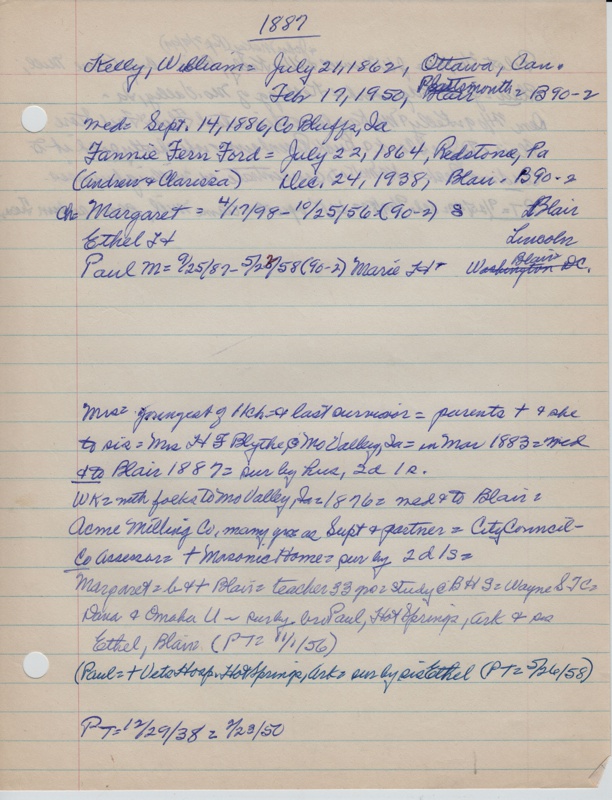 1887
Kelly, William = July 21, 1862, Ottawa, Can.
Feb 17, 1950, Blair Plattsmouth = B90-2
med = Sept. 14, 1886, Co Bluffs, Ia
Fannie Fern Ford = July 22, 1864, Redstone, Pa
(Andrew & Clarissa) Dec. 24, 1938, Blair - B90-2
Ch = Margaret = 4/17/98 - 10/25/56 (90-2) S Blair
Ethel Lincoln
Paul M = 9/25/87 - 5/23/58 (90-2) Marie Washington DC. Blair
Mrs = youngest of 11 ch = & last survivor = parents + & she
to sis = Mrs H F Blythe, @ Mo Valley, Ia = in Mar 1883 = med
& to Blair 1887 = sur by hus, 2d 1s.
WK = with folks to Mo Valley, Ia = 1876 = med & to Blair =
Acme Milling Co, many yrs as Supt & partner = City Council -
Co assessor = + Masonic Home = sur by 2d 1s =
Margaret = b & + Blair = teacher 33 yrs = study @ BHS = Wayne STC =
Dana & Omaha U - sur by bro Paul, Hot Springs, Ark & sis
Ethel, Blair (PT = 11/1/56)
(Paul = + Vets Hosp. Hot Springs, Ark = sur by sis Ethel (PT = 5/26/58)
PT = 12/29/38 = 2/23/50